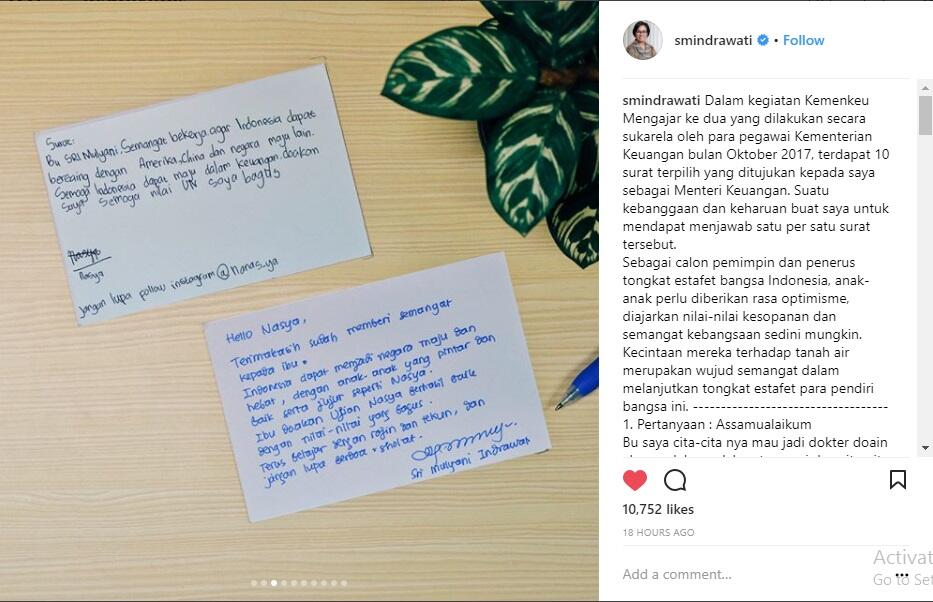 Surat:
Bu SRI Mulyani, Semangat bekerja agar Indonesia dapat
bersaing dengan Amerika, China dan negara maju lain.
Semoga Indonesia dapat maju dalam keuangan, doakan
saya semoga nilai UN saya bagus
Nasya
Nasya
jangan lupa follow instagram @Nanas_ya
Hello Nasya,
Terimakasih sudah memberi semangat
kepada ibu.
Indonesia dapat menjadi negara maju dan
hebat, dengan anak-anak yang pintar dan
baik serta jujur seperti Nasya.
Ibu doakan Ujian Nasya berhasil baik
dengan nilai-nilai yang bagus.
Terus belajar dengan rajin dan tekun, dan
jangan lupa berdoa + sholat.
Sri Mulyani Indrawati
smindrawati • Follow
smindrawati Dalam kegiatan Kemenkeu
Mengajar ke dua yang dilakukan secara
sukarela oleh para pegawai Kementerian
Keuangan bulan Oktober 2017, terdapat 10
surat terpilih yang ditujukan kepada saya
sebagai Menteri Keuangan. Suatu
kebanggaan dan keharuan buat saya untuk
mendapat menjawab satu per satu surat
tersebut.
Sebagai calon pemimpin dan penerus
tongkat estafet bangsa Indonesia, anak-
anak perlu diberikan rasa optimisme,
diajarkan nilai-nilai kesopanan dan
semangat kebangsaan sedini mungkin.
Kecintaan mereka terhadap tanah air
merupakan wujud semangat dalam
melanjutkan tongkat estafet para pendiri
bangsa ini. -----------------------------------
1. Pertanyaan : Assamualaikum
Bu saya cita-cita nya mau jadi dokter doain
10,752 likes
18 HOURS AGO
Add a comment...
Activat
Go to Set